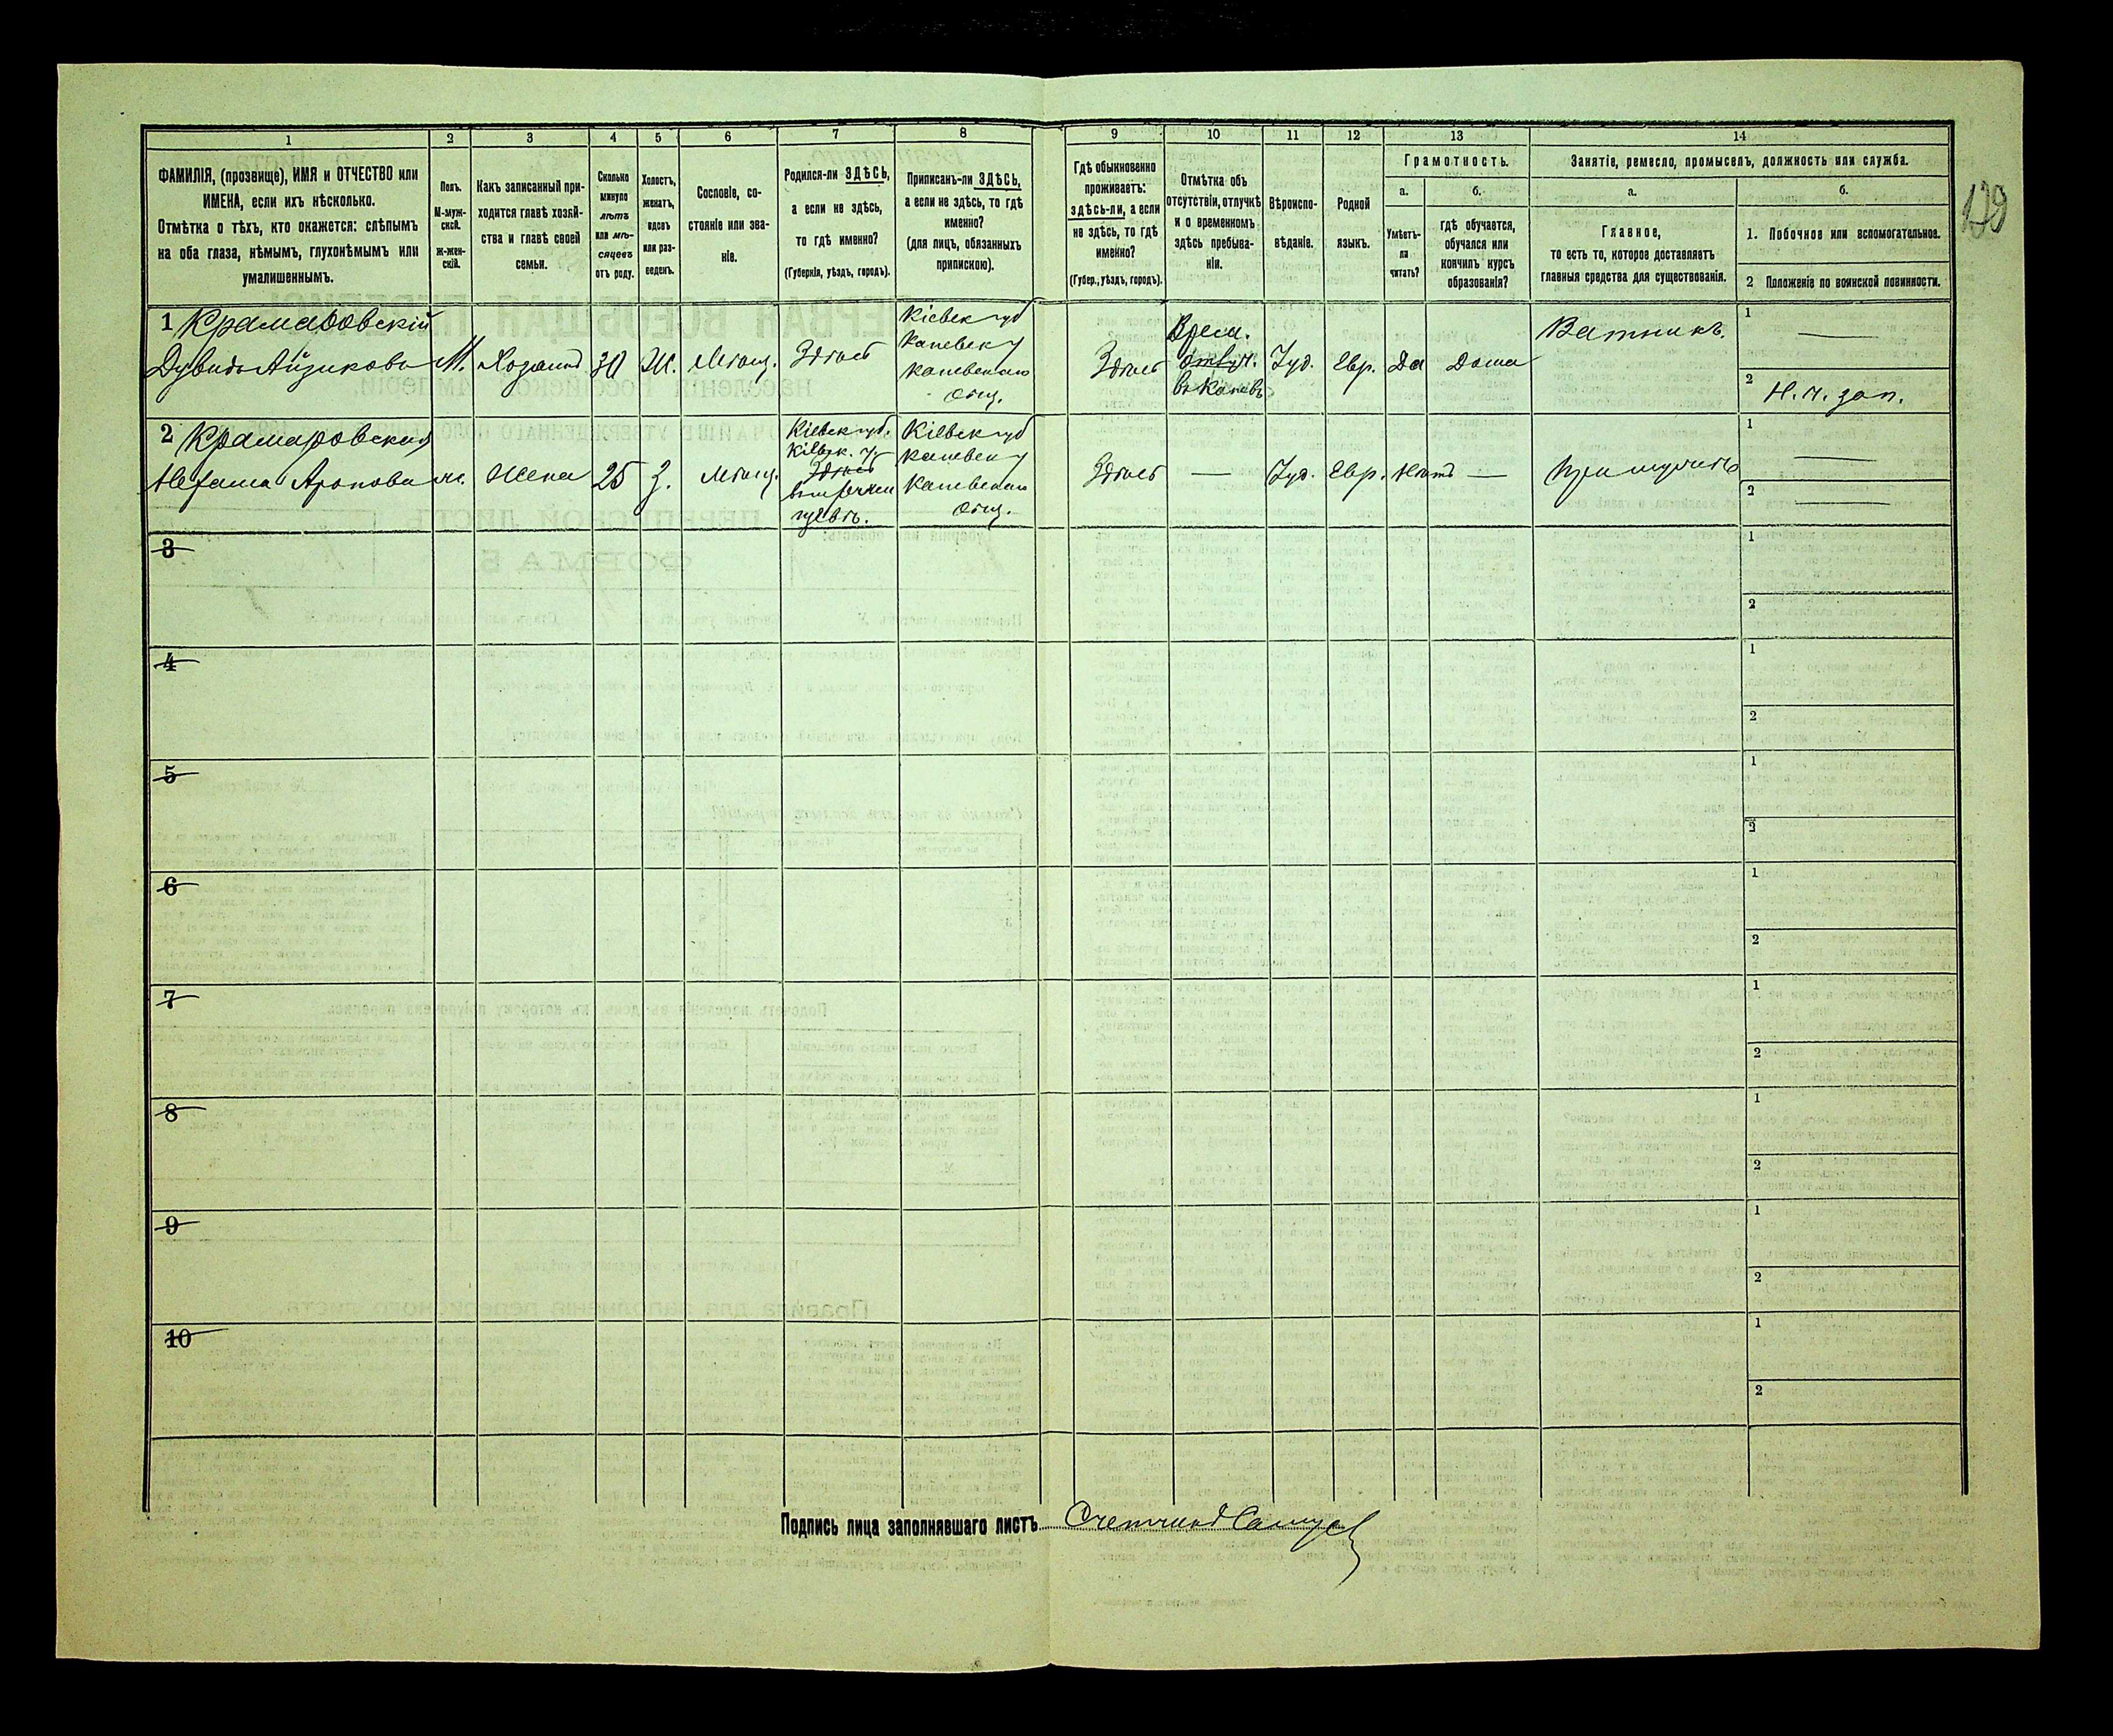 129
1
2
3
4
5
6
7
8
9
10
11
12
13
14
ФАМИЛІЯ, (прозвище), ИМЯ и ОТЧЕСТВО или
ИМЕНА, если ихъ нѣсколько.
Отмѣтка о тѣхъ, кто окажется: слѣпымъ
на оба глаза, нѣмымъ, глухонѣмымъ или
умалишеннымъ.
Полъ.
М-муж-
ской.
Ж-жен-
скій.
Какъ записанный при-
ходится главѣ хозяй-
ства и главѣ своей
семьи.
Сколько
минуло
лѣтъ
или мѣ-
сяцевъ
отъ роду.
Холостъ,
женатъ,
вдовъ
или раз-
веденъ.
Сословіе, со-
стояніе или зва-
ніе.
Родился-ли ЗДѢСЬ,
а если не здѣсь,
то гдѣ именно?
(Губернія, уѣздъ, городъ).
Приписанъ-ли ЗДѢСЬ,
а если не здѣсь, то гдѣ
именно?
(для лицъ, обязанныхъ
припискою).
Гдѣ обыкновенно
проживаетъ:
здѣсь-ли, а если
не здѣсь, то гдѣ
именно?
(Губер., уѣздъ, городъ).
Отмѣтка объ
отсутствіи, отлучкѣ
и о временномъ
здѣсь пребыва-
ніи.
Вѣроиспо-
вѣданіе.
Родной
языкъ.
Грамотность.
а.
Умѣетъ-
ли
читать?
б.
гдѣ обучается,
обучался или
кончилъ курсъ
образованія?
Занятіе, ремесло, промыселъ, должность или служба.
а.
Главное,
то есть то, которое доставляетъ
главныя средства для существованія.
б.
1. Побочное или вспомогательное.
2 Положеніе по воинской повинности.
1 Крамаровскій
Дувидъ Айзиковъ
М.
Хозяинъ
30
Ж.
Мѣщ.
Здѣсь
Кіевск губ
Каневск у
Каневскаго
общ.
Здѣсь
Врем.
отлуч.
въ Каневъ
Іуд.
Евр.
Да
Дома
Ватникъ.
1 —
2 Н. ч. зап.
2 Крамаровская
Нехама Аронова
ж.
Жена
25
З.
Мѣщ.
Кіевск губ.
Кіевск. у.
Здѣсь
Кіевск губ
Каневск у
Каневскаго
общ.
Здѣсь
—
Іуд.
Евр.
Нѣтъ
—
При мужѣ
1 —
2 —
3
1
2
4
1
2
5
1
2
6
1
2
7
1
2
8
1
2
9
1
2
10
1
2
Подпись лица заполнявшаго листъ Счетчикъ